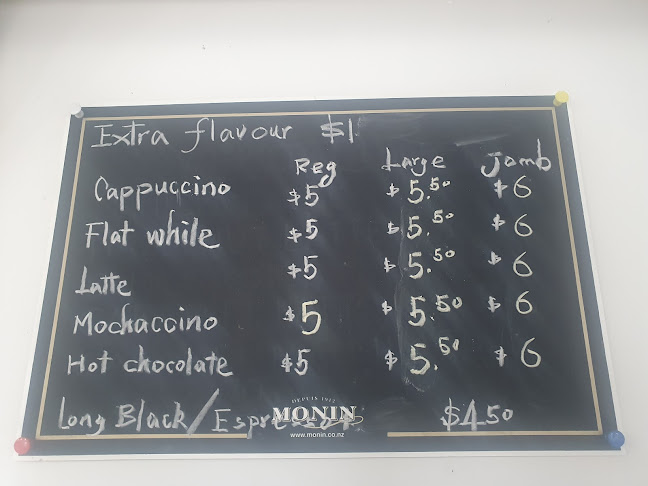 Extra flavour $1
Reg Large Jamb
Cappuccino $5 $5.50 $6
Flat while $5 $5.50 $6
Latte $5 $5.50 $6
Mochaccino $5 $5.50 $6
Hot chocolate $5 $5.50 $6
Long Black/Espresso $4.50
DEPUIS 1912
MONIN
www.monin.co.nz